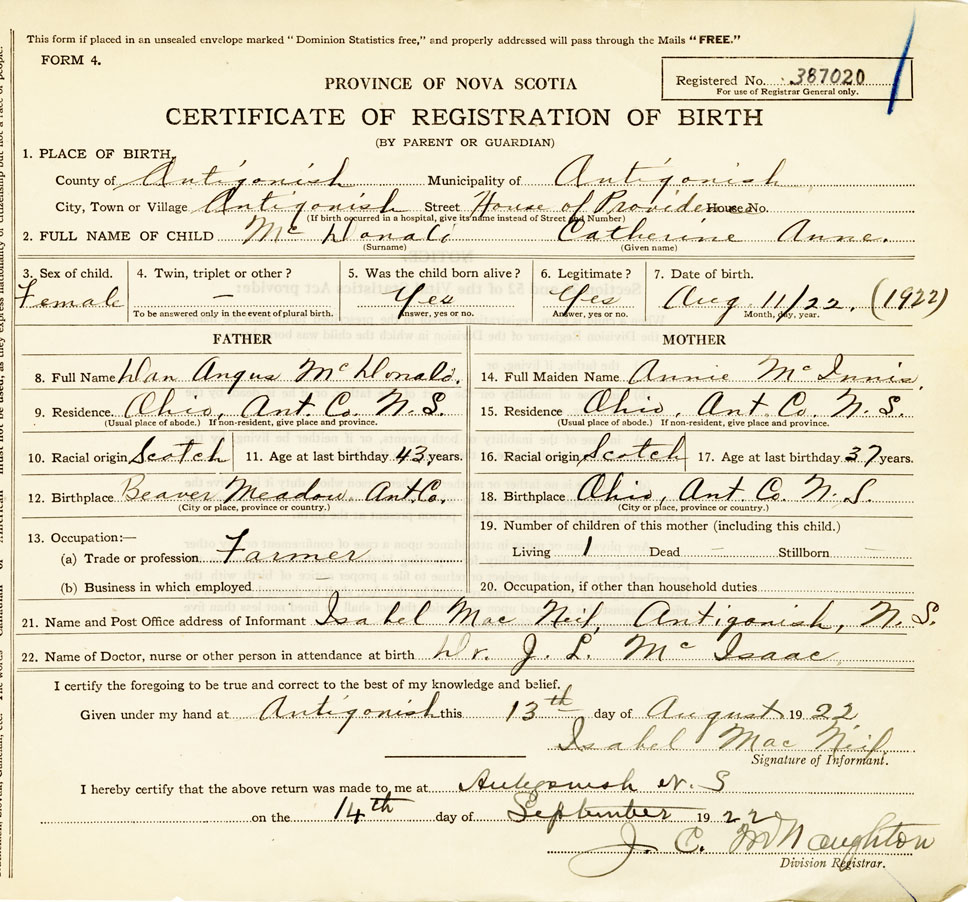 This form if placed in an unsealed envelope marked "Dominion Statistics free," and properly addressed will pass through the Mails "FREE."
FORM 4.
Registered No. 387020
For use of Registrar General only.
PROVINCE OF NOVA SCOTIA
CERTIFICATE OF REGISTRATION OF BIRTH
(BY PARENT OR GUARDIAN)
1. PLACE OF BIRTH,
County of Antigonish Municipality of Antigonish
City, Town or Village Antigonish Street House of Providence House No.
(If birth occurred in a hospital, give its name instead of Street and Number)
2. FULL NAME OF CHILD McDonald Catherine Anne.
(Surname) (Given name)
3. Sex of child. 4. Twin, triplet or other? 5. Was the child born alive? 6. Legitimate? 7. Date of birth.
Female — Yes Yes Aug 11/22. (1922)
To be answered only in the event of plural birth. Answer, yes or no. Answer, yes or no. Month, day, year.
FATHER MOTHER
8. Full Name Dan Angus McDonald. 14. Full Maiden Name Annie McInnis.
9. Residence Ohio, Ant. Co. N. S. 15. Residence Ohio, Ant Co. N. S.
(Usual place of abode.) If non-resident, give place and province. (Usual place of abode.) If non-resident, give place and province.
10. Racial origin Scotch 11. Age at last birthday 43 years. 16. Racial origin Scotch 17. Age at last birthday 37 years.
12. Birthplace Beaver Meadow Ant. Co. 18. Birthplace Ohio, Ant Co. N. S.
(City or place, province or country.) (City or place, province or country.)
13. Occupation:— 19. Number of children of this mother (including this child.)
(a) Trade or profession Farmer Living 1 Dead — Stillborn —
(b) Business in which employed — 20. Occupation, if other than household duties
21. Name and Post Office address of Informant Isabel Mac Neil, Antigonish, N. S.
22. Name of Doctor, nurse or other person in attendance at birth Dr. J. L. McIsaac
I certify the foregoing to be true and correct to the best of my knowledge and belief.
Given under my hand at Antigonish this 13th day of August 1922
Isabel Mac Neil.
Signature of Informant.
I hereby certify that the above return was made to me at Antigonish N. S
on the 14th day of September 1922
J. C. McNaughton
Division Registrar.